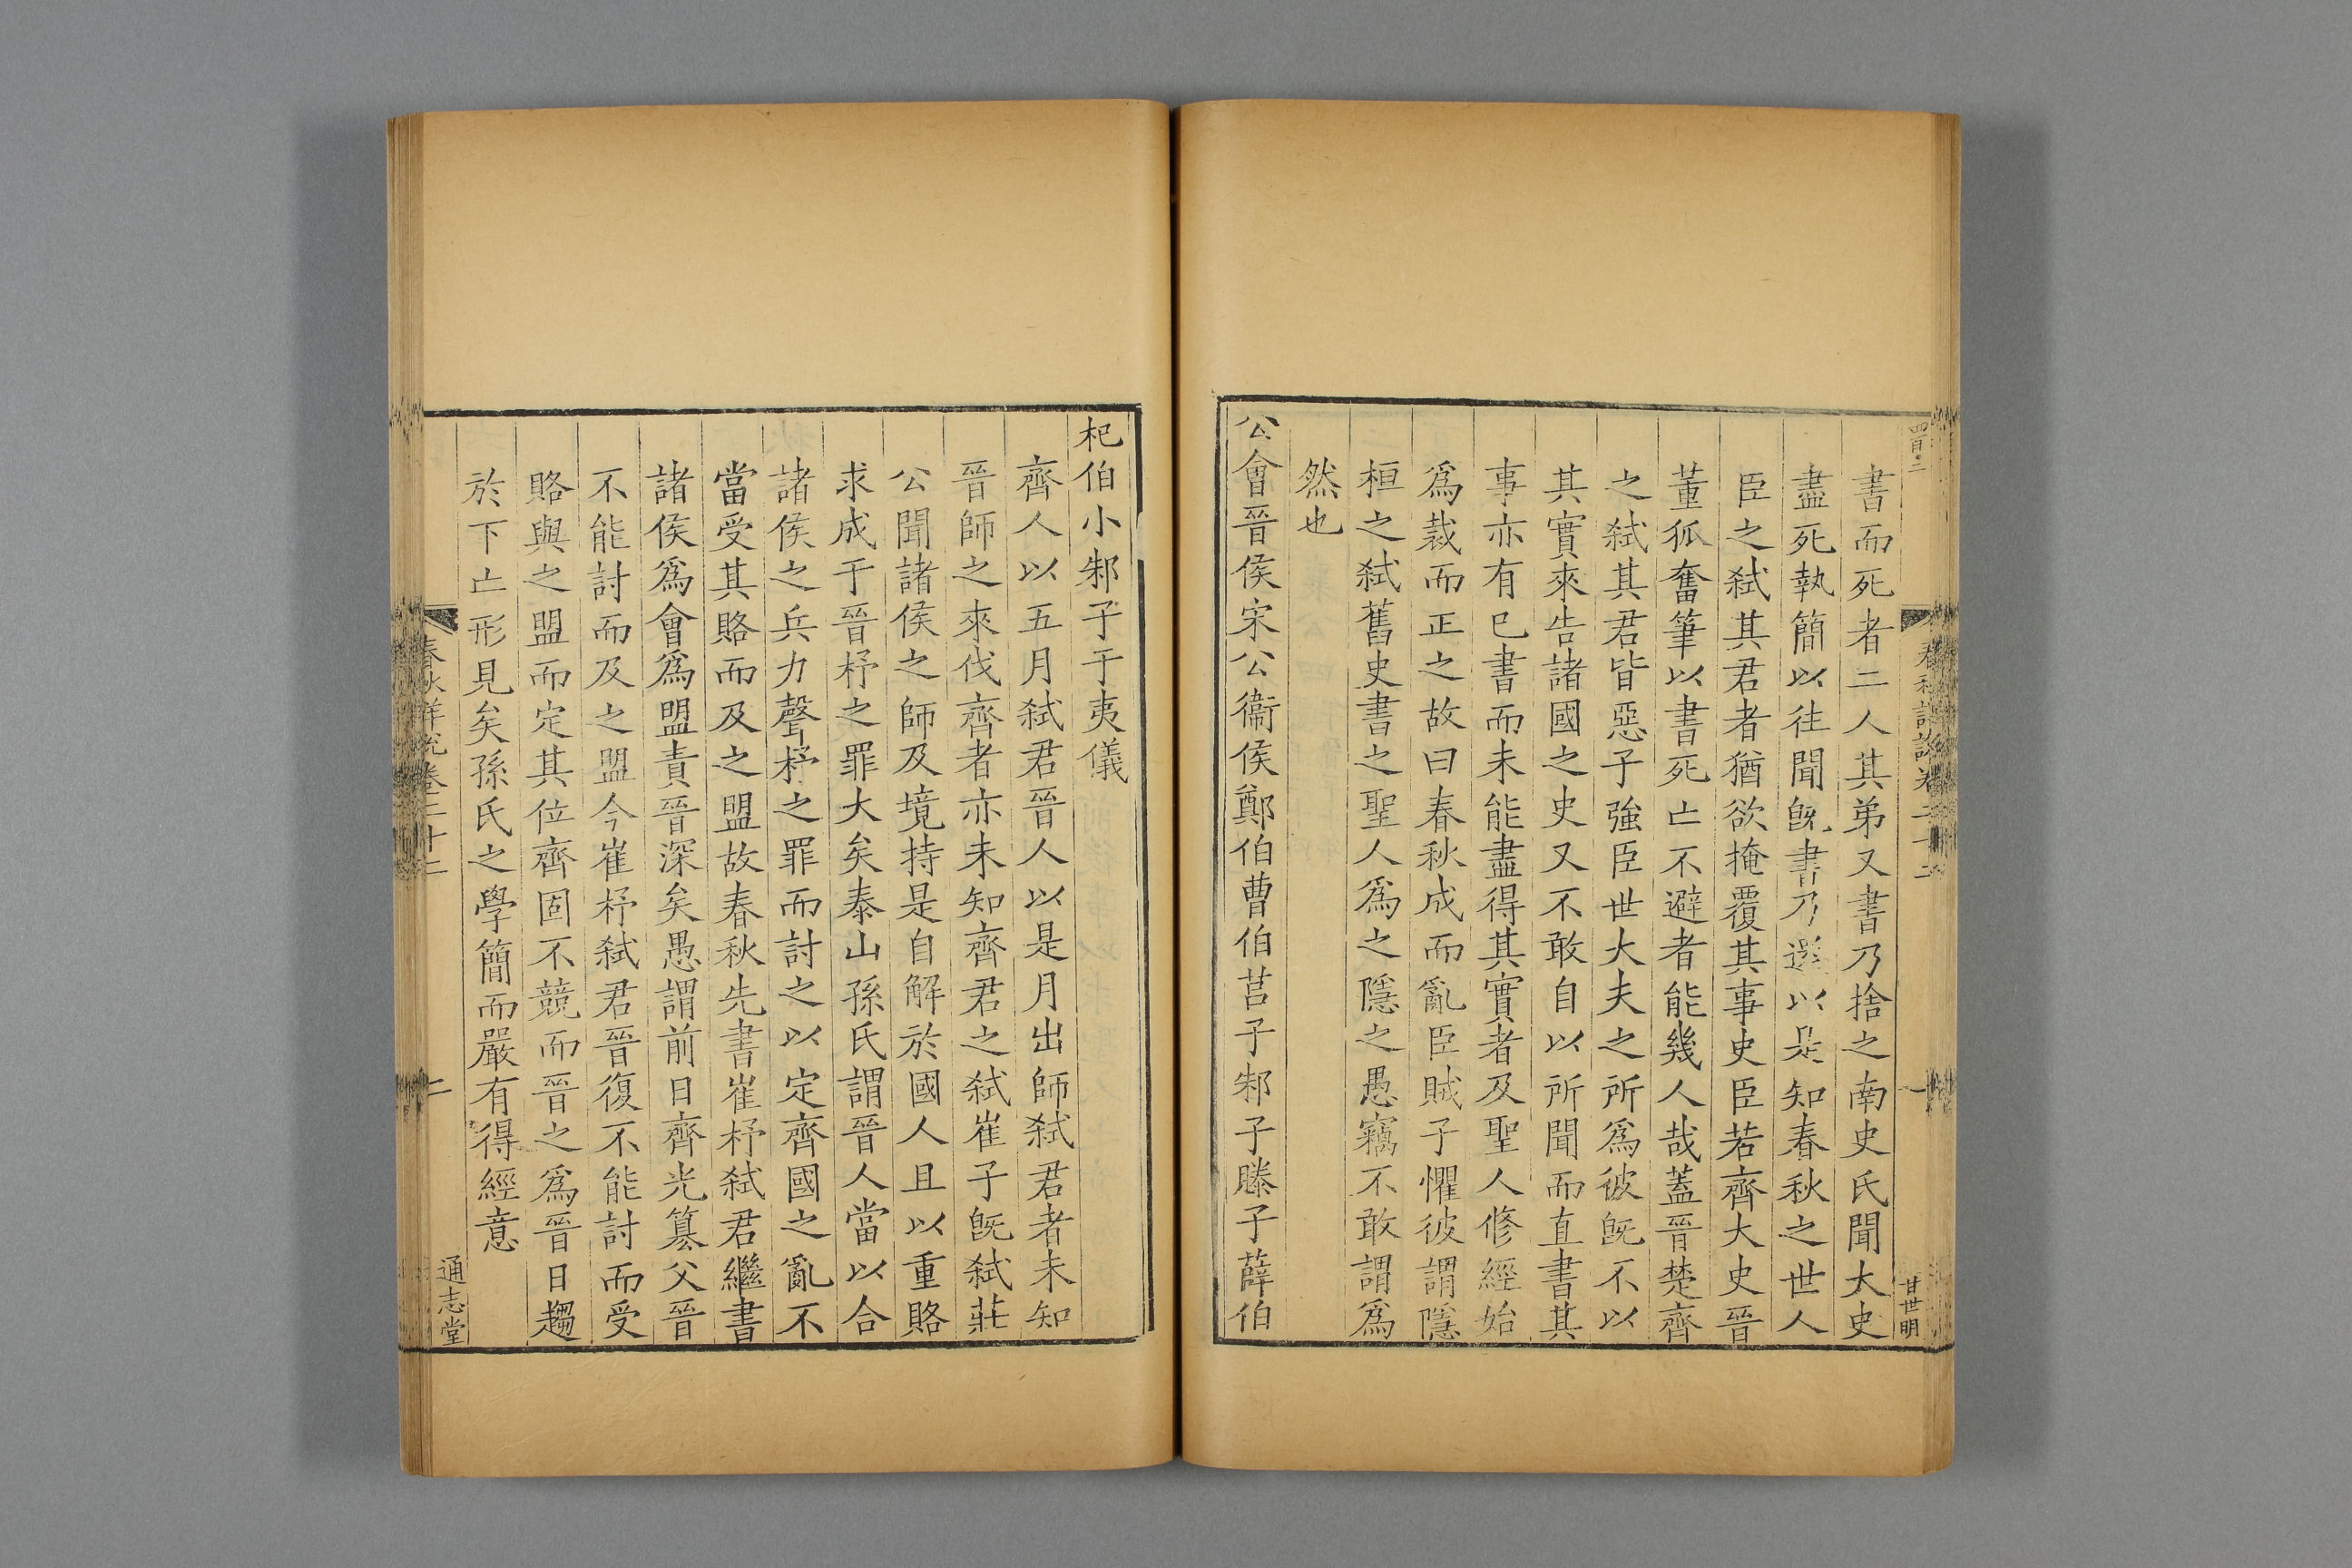 四百二
書而死者二人其弟又書乃捨之南史氏聞大史
盡死執簡以往聞旣書乃還以是知春秋之世人
臣之弑其君者猶欲掩覆其事史臣若齊大史晉
董狐奮筆以書死亡不避者能幾人哉蓋晉楚齊
之弑其君皆惡子強臣世大夫之所爲彼旣不以
其實來告諸國之史又不敢自以所聞而直書其
事亦有已書而未能盡得其實者及聖人修經始
爲裁而正之故曰春秋成而亂臣賊子懼彼謂隱
桓之弑舊史書之聖人爲之隱之愚竊不敢謂爲
然也
公會晉侯宋公衞侯鄭伯曹伯莒子邾子滕子薛伯
甘世明
杞伯小邾子于夷儀
齊人以五月弑君晉人以是月出師弑君者未知
晉師之來伐齊者亦未知齊君之弑崔子旣弑莊
公聞諸侯之師及境持是自解於國人且以重賂
求成于晉杼之罪大矣泰山孫氏謂晉人當以合
諸侯之兵力聲杼之罪而討之以定齊國之亂不
當受其賂而及之盟故春秋先書崔杼弑君繼書
諸侯爲會爲盟責晉深矣愚謂前日齊光簒父晉
不能討而及之盟今崔杼弑君晉復不能討而受
賂與之盟而定其位齊固不競而晉之爲晉日趨
於下亡形見矣孫氏之學簡而嚴有得經意
春秋詳說卷二十二
二
通志堂